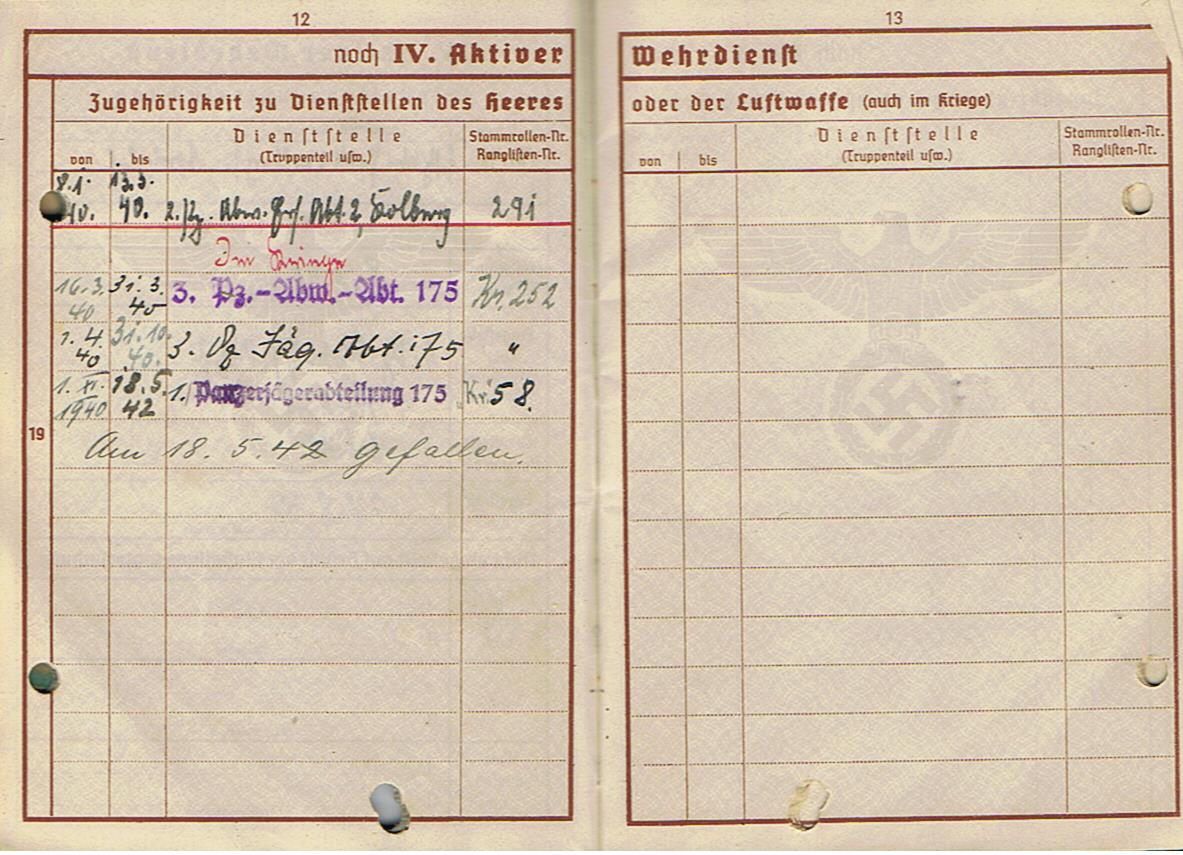 12
noch IV. Aktiver
Zugehörigkeit zu Dienststellen des Heeres
von bis Dienststelle (Truppenteil usw.) Stammrollen-Nr. Ranglisten-Nr.
8.1. 13.3.
40. 40. 2. Pz. Abw. Ers. Abt. 2, Kolberg 291
Im Kriege
16.3. 31.3. 3. Pz.-Abw.-Abt. 175 Kr. 252
40 40
1. 4. 31.10. 3. Pz Jäg. Abt. 175 "
40 40.
1. XI. 18.5. 1. Panzerjägerabteilung 175 Kr. 58.
1940 42
19
Am 18. 5. 42 gefallen.
13
Wehrdienst
oder der Luftwaffe (auch im Kriege)
von bis Dienststelle (Truppenteil usw.) Stammrollen-Nr. Ranglisten-Nr.